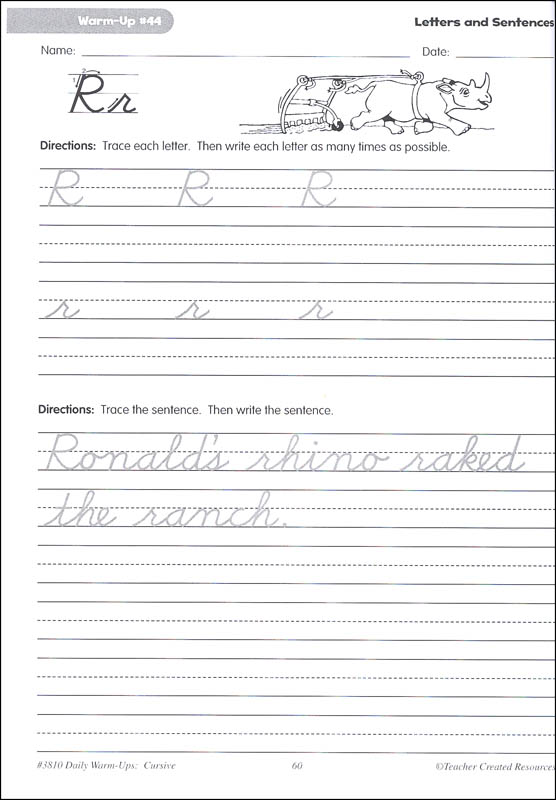 Warm-Up #44
Letters and Sentences
Name: Date:
1 2
R r
Directions: Trace each letter. Then write each letter as many times as possible.
R R R
r r r
Directions: Trace the sentence. Then write the sentence.
Ronald's rhino raked
the ranch.
#3810 Daily Warm-Ups: Cursive 60 ©Teacher Created Resources